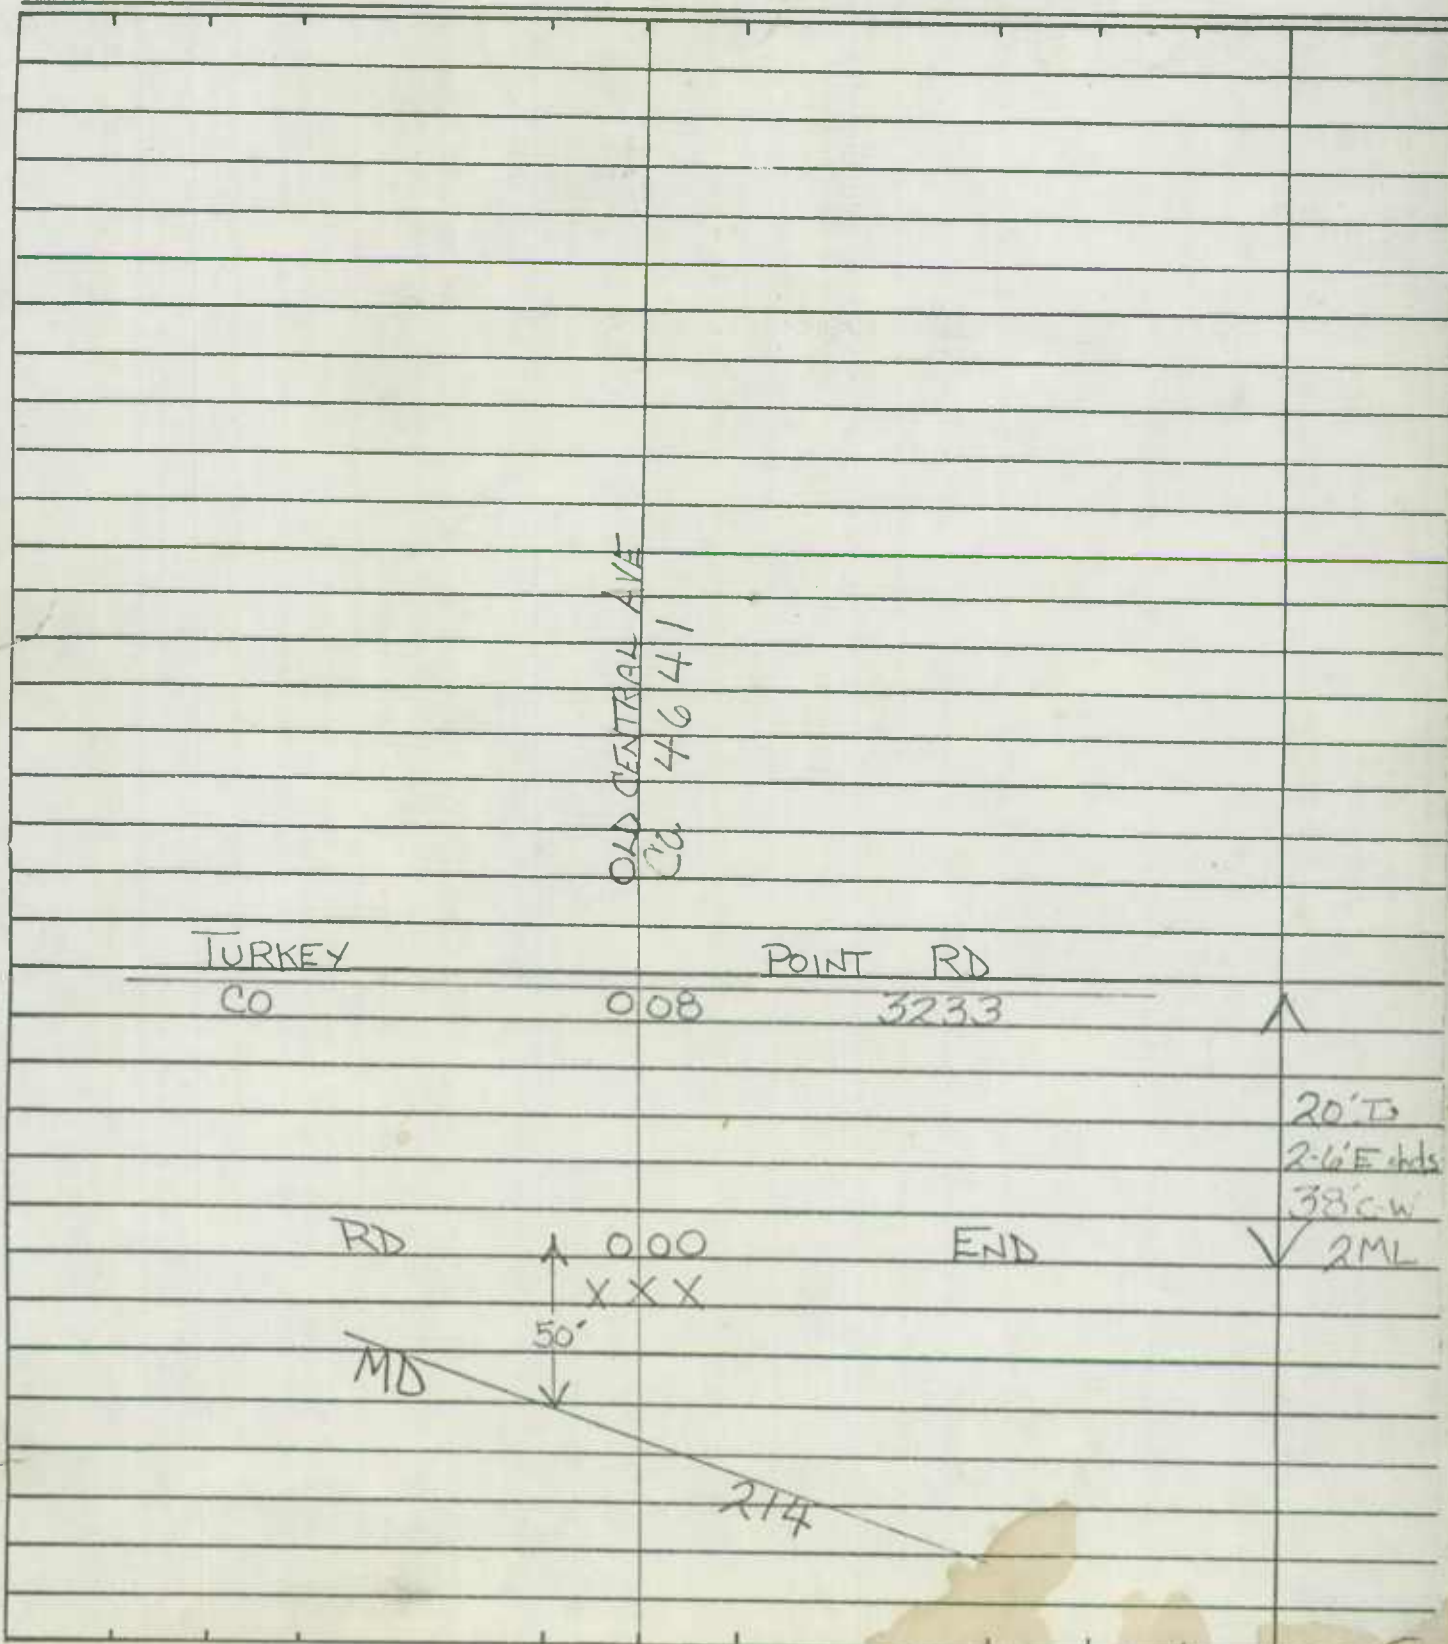 OLD CENTRAL AVE
Co 4641
TURKEY POINT RD
CO 008 3233
20' T
2-6' E shds
38' C-W
2 ML
RD 000 END
X X X
50'
MD 214